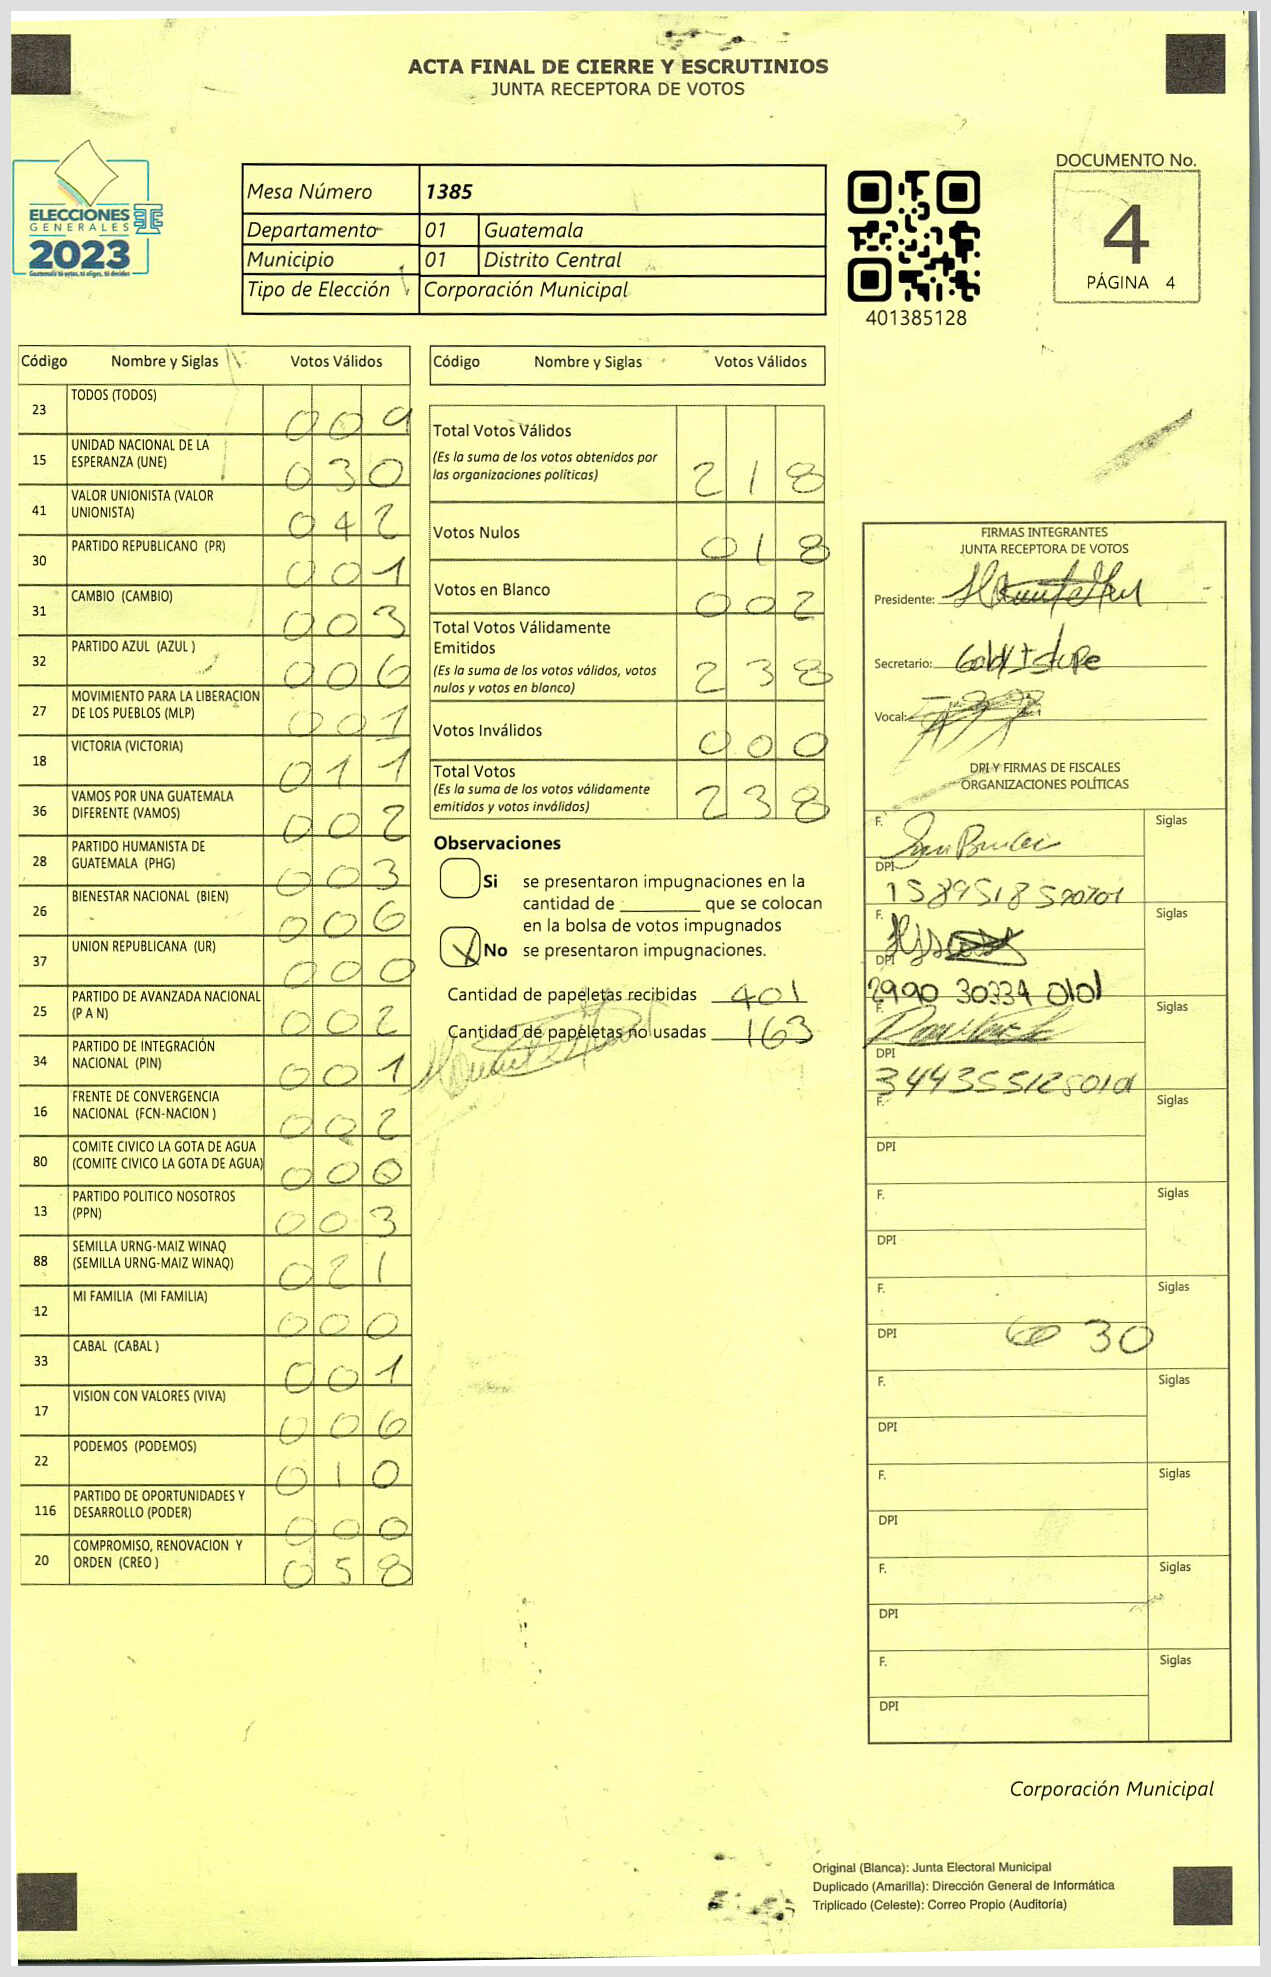 ACTA FINAL DE CIERRE Y ESCRUTINIOS
JUNTA RECEPTORA DE VOTOS
ELECCIONES
GENERALES
2023
Guatemala tú votas, tú eliges, tú decides
Mesa Número 1385
Departamento 01 Guatemala
Municipio 01 Distrito Central
Tipo de Elección Corporación Municipal
401385128
DOCUMENTO No.
4
PÁGINA 4
Código Nombre y Siglas Votos Válidos
23 TODOS (TODOS) 009
15 UNIDAD NACIONAL DE LA
ESPERANZA (UNE) 030
41 VALOR UNIONISTA (VALOR
UNIONISTA) 042
30 PARTIDO REPUBLICANO (PR) 001
31 CAMBIO (CAMBIO) 003
32 PARTIDO AZUL (AZUL ) 006
27 MOVIMIENTO PARA LA LIBERACION
DE LOS PUEBLOS (MLP) 001
18 VICTORIA (VICTORIA) 011
36 VAMOS POR UNA GUATEMALA
DIFERENTE (VAMOS) 002
28 PARTIDO HUMANISTA DE
GUATEMALA (PHG) 003
26 BIENESTAR NACIONAL (BIEN) 006
37 UNION REPUBLICANA (UR) 000
25 PARTIDO DE AVANZADA NACIONAL
(P A N) 002
34 PARTIDO DE INTEGRACIÓN
NACIONAL (PIN) 001
16 FRENTE DE CONVERGENCIA
NACIONAL (FCN-NACION ) 002
80 COMITE CIVICO LA GOTA DE AGUA
(COMITE CIVICO LA GOTA DE AGUA) 000
13 PARTIDO POLITICO NOSOTROS
(PPN) 003
88 SEMILLA URNG-MAIZ WINAQ
(SEMILLA URNG-MAIZ WINAQ) 021
12 MI FAMILIA (MI FAMILIA) 000
33 CABAL (CABAL ) 001
17 VISION CON VALORES (VIVA) 006
22 PODEMOS (PODEMOS) 010
116 PARTIDO DE OPORTUNIDADES Y
DESARROLLO (PODER) 000
20 COMPROMISO, RENOVACION Y
ORDEN (CREO ) 058
Código Nombre y Siglas Votos Válidos
Total Votos Válidos
(Es la suma de los votos obtenidos por
las organizaciones políticas) 218
Votos Nulos 018
Votos en Blanco 002
Total Votos Válidamente
Emitidos
(Es la suma de los votos válidos, votos
nulos y votos en blanco) 238
Votos Inválidos 000
Total Votos
(Es la suma de los votos válidamente
emitidos y votos inválidos) 238
Observaciones
Si se presentaron impugnaciones en la
cantidad de ________ que se colocan
en la bolsa de votos impugnados
X No se presentaron impugnaciones.
Cantidad de papeletas recibidas 401
Cantidad de papeletas no usadas 163
FIRMAS INTEGRANTES
JUNTA RECEPTORA DE VOTOS
Presidente:
Secretario:
Vocal:
DPI Y FIRMAS DE FISCALES
ORGANIZACIONES POLÍTICAS
F. Siglas
DPI
F. Siglas
DPI
2990 30334 0101
F. Siglas
DPI
F. Siglas
DPI
F. Siglas
DPI
F. Siglas
DPI 30
F. Siglas
DPI
F. Siglas
DPI
F. Siglas
DPI
F. Siglas
DPI
Corporación Municipal
Original (Blanca): Junta Electoral Municipal
Duplicado (Amarilla): Dirección General de Informática
Triplicado (Celeste): Correo Propio (Auditoría)